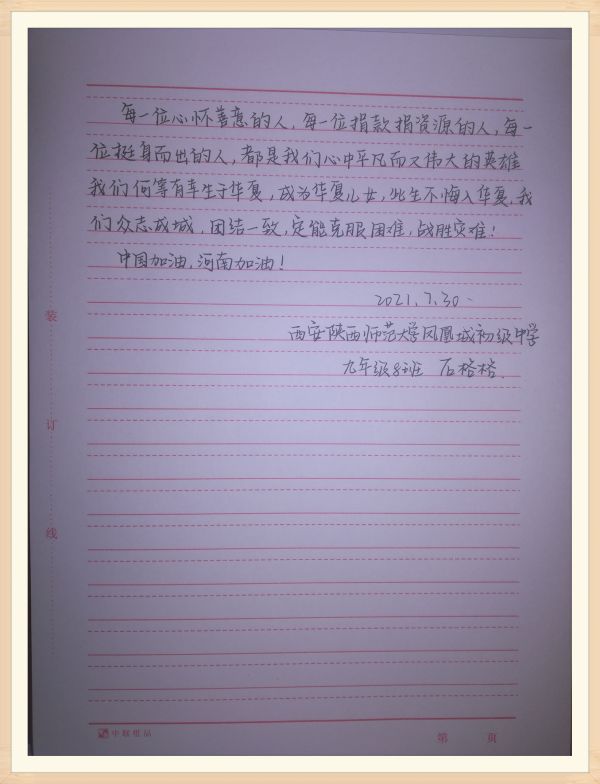 每一位心怀善意的人,每一位捐款捐资源的人,每一
位挺身而出的人,都是我们心中平凡而又伟大的英雄
我们何等有幸生于华夏,成为华夏儿女,此生不悔入华夏,我
们众志成城,团结一致,定能克服困难,战胜灾难!
中国加油,河南加油!
2021.7.30.
西安陕西师范大学凤凰城初级中学
九年级8班 石格格.
装
订
线
中联纸品
第 页